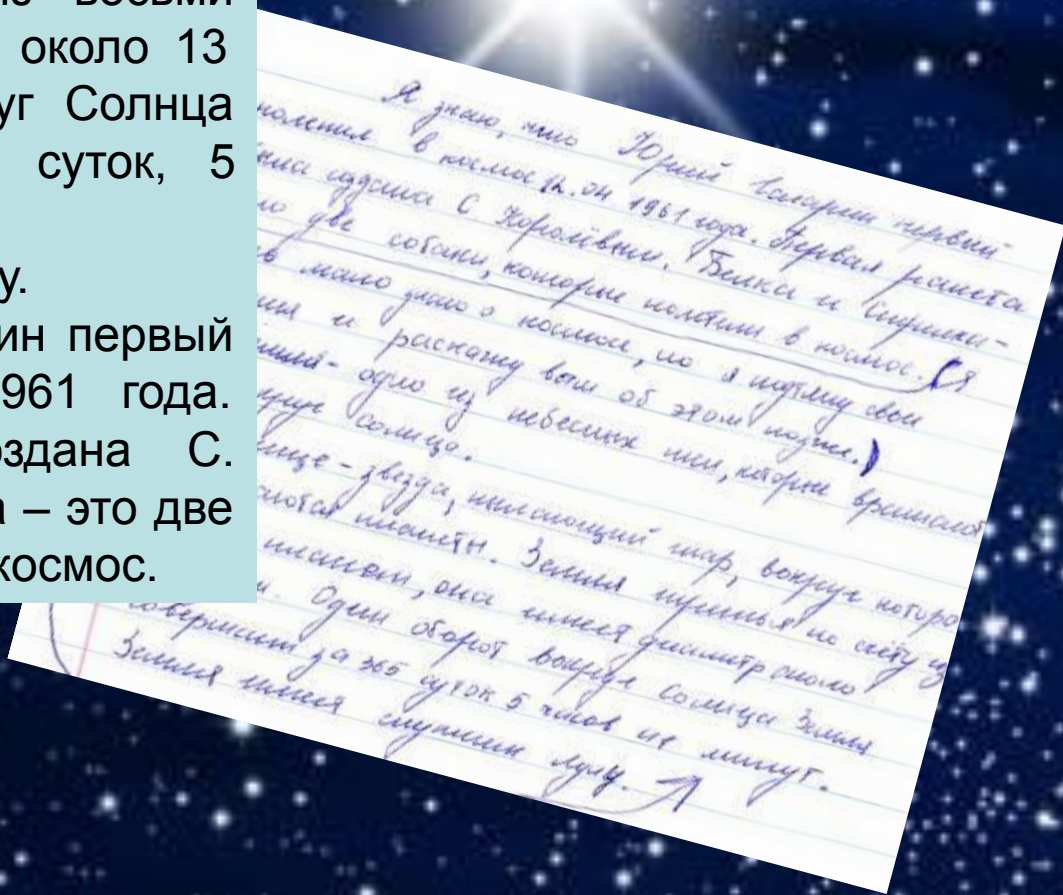 восьми
около 13
уг Солнца
суток, 5
у.
ин первый
961 года.
здана С.
а – это две
космос.
Я знаю, что Юрий Гагарин первый
полетел в космос 12.04 1961 года. Первая ракета
создана С Королёвым. Белка и Стрелка-
две собаки, которые полетели в космос. (Я
мало знаю о космосе, но я подтяну свои
и раскажу вам об этом позже.)
одно из небесных тел, которые вращаются
Солнца.
звезда, пылающий шар, вокруг которо
планеты. Земля третья по счёту из
она имеет диаметр около
Один оборот вокруг Солнца Земля
совершает за 365 суток 5 часов минут.
Земля имеет спутник луну.